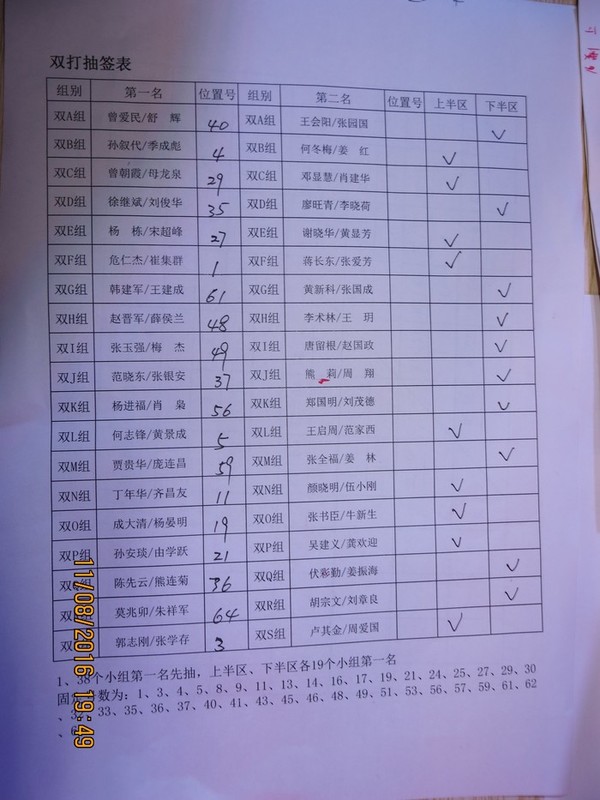 双打抽签表
组别 第一名 位置号 组别 第二名 位置号 上半区 下半区
双A组 曾爱民/舒 辉 40 双A组 王会阳/张园国 ✓
双B组 孙叙代/季成彪 4 双B组 何冬梅/姜 红 ✓
双C组 曾朝霞/母龙泉 29 双C组 邓显慧/肖建华 ✓
双D组 徐继斌/刘俊华 35 双D组 廖旺青/李晓荷 ✓
双E组 杨 栋/宋超峰 27 双E组 谢晓华/黄显芳 ✓
双F组 危仁杰/崔集群 1 双F组 蒋长东/张爱芳 ✓
双G组 韩建军/王建成 61 双G组 黄新科/张国成 ✓
双H组 赵晋军/薛侯兰 48 双H组 李术林/王 玥 ✓
双I组 张玉强/梅 杰 49 双I组 唐留根/赵国政 ✓
双J组 范晓东/张银安 37 双J组 熊 莉/周 翔 ✓
双K组 杨进福/肖 枭 56 双K组 郑国明/刘茂德 ✓
双L组 何志锋/黄景成 5 双L组 王启周/范家西 ✓
双M组 贾贵华/庞连昌 59 双M组 张全福/姜 林 ✓
双N组 丁年华/齐昌友 11 双N组 颜晓明/伍小刚 ✓
双O组 成大清/杨晏明 19 双O组 张书臣/牛新生 ✓
双P组 孙安琰/由学跃 21 双P组 吴建义/龚欢迎 ✓
陈先云/熊连菊 36 双Q组 伏彩勤/姜振海 ✓
莫兆卯/朱祥军 64 双R组 胡宗文/刘章良 ✓
郭志刚/张学存 3 双S组 卢其金/周爱国 ✓
1、38个小组第一名先抽，上半区、下半区各19个小组第一名
数为：1、3、4、5、8、9、11、13、14、16、17、19、21、24、25、27、29、30
、33、35、36、37、40、41、43、45、46、48、49、51、53、56、57、59、61、62
11/08/2016 19:49